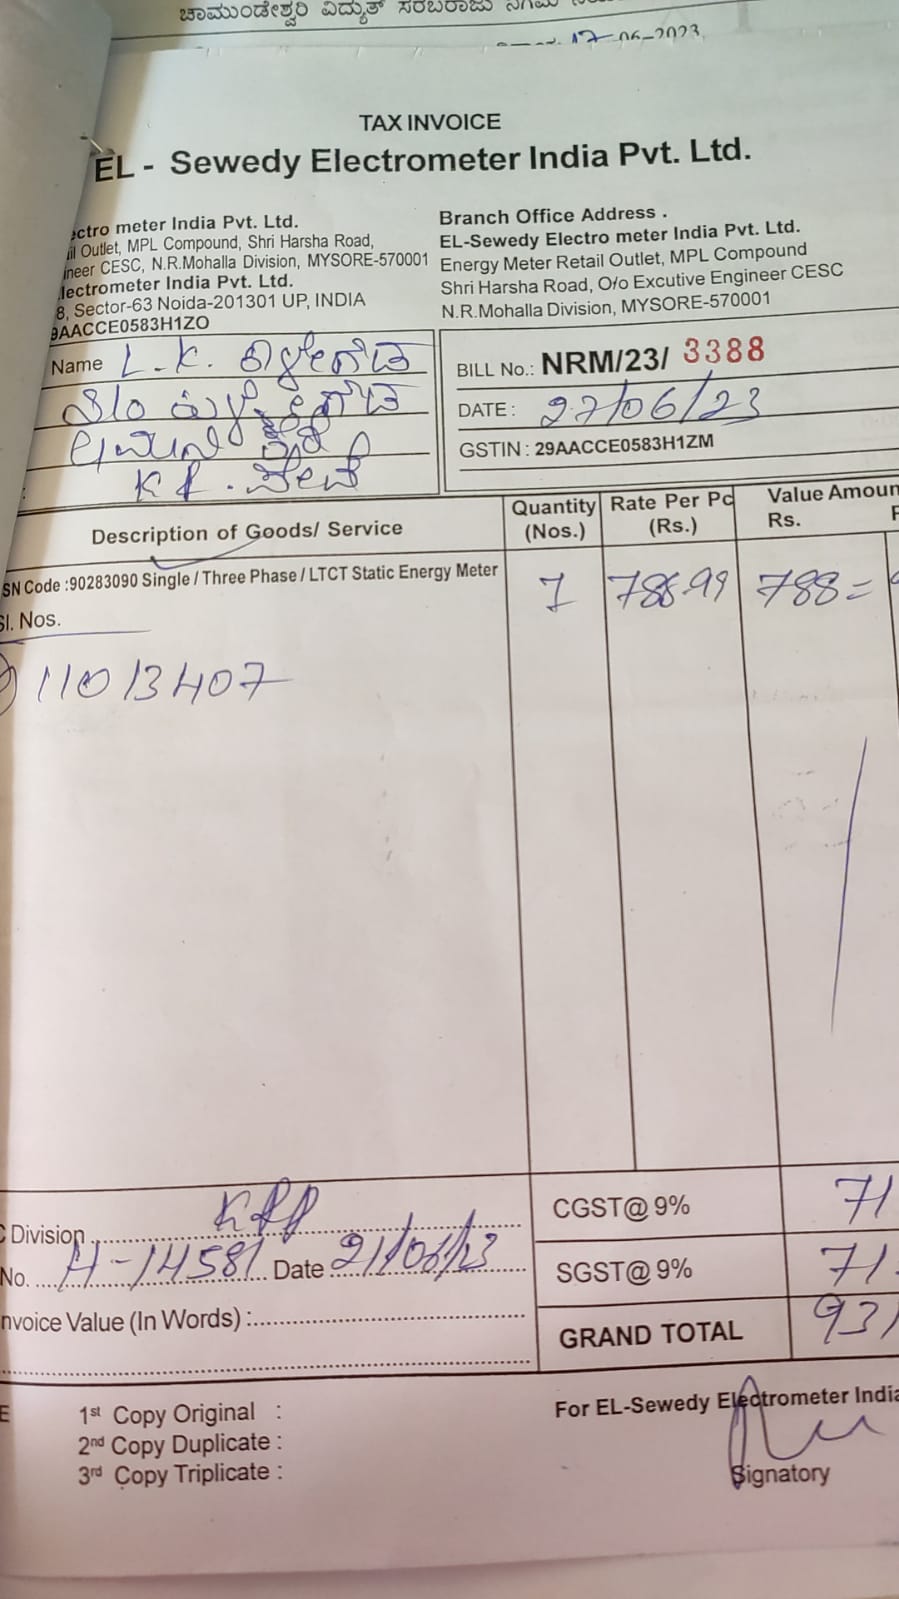 ಚಾಮುಂಡೇಶ್ವರಿ ವಿದ್ಯುತ್ ಸರಬರಾಜು ನಿಗಮ
17-06-2023
TAX INVOICE
EL - Sewedy Electrometer India Pvt. Ltd.
ectro meter India Pvt. Ltd.
il Outlet, MPL Compound, Shri Harsha Road,
ineer CESC, N.R.Mohalla Division, MYSORE-570001
lectrometer India Pvt. Ltd.
8, Sector-63 Noida-201301 UP, INDIA
9AACCE0583H1ZO
Branch Office Address .
EL-Sewedy Electro meter India Pvt. Ltd.
Energy Meter Retail Outlet, MPL Compound
Shri Harsha Road, O/o Excutive Engineer CESC
N.R.Mohalla Division, MYSORE-570001
Name L.K.
BILL No.: NRM/23/ 3388
DATE : 27/06/23
GSTIN : 29AACCE0583H1ZM
Description of Goods/ Service
Quantity (Nos.)
Rate Per Pc (Rs.)
Value Amoun
Rs.
SN Code :90283090 Single / Three Phase / LTCT Static Energy Meter
1 788.99 788=
Sl. Nos.
11013407
C Division
CGST@ 9% 71
No. H-14581 Date 21/06/23
SGST@ 9% 71
nvoice Value (In Words) :
GRAND TOTAL 931
1st Copy Original :
2nd Copy Duplicate :
3rd Copy Triplicate :
For EL-Sewedy Electrometer India
Signatory